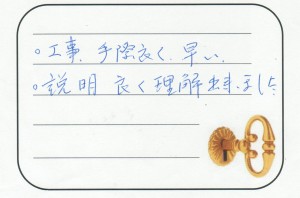 ○工事、手際良く、早い、
○説明 良く理解出来ました